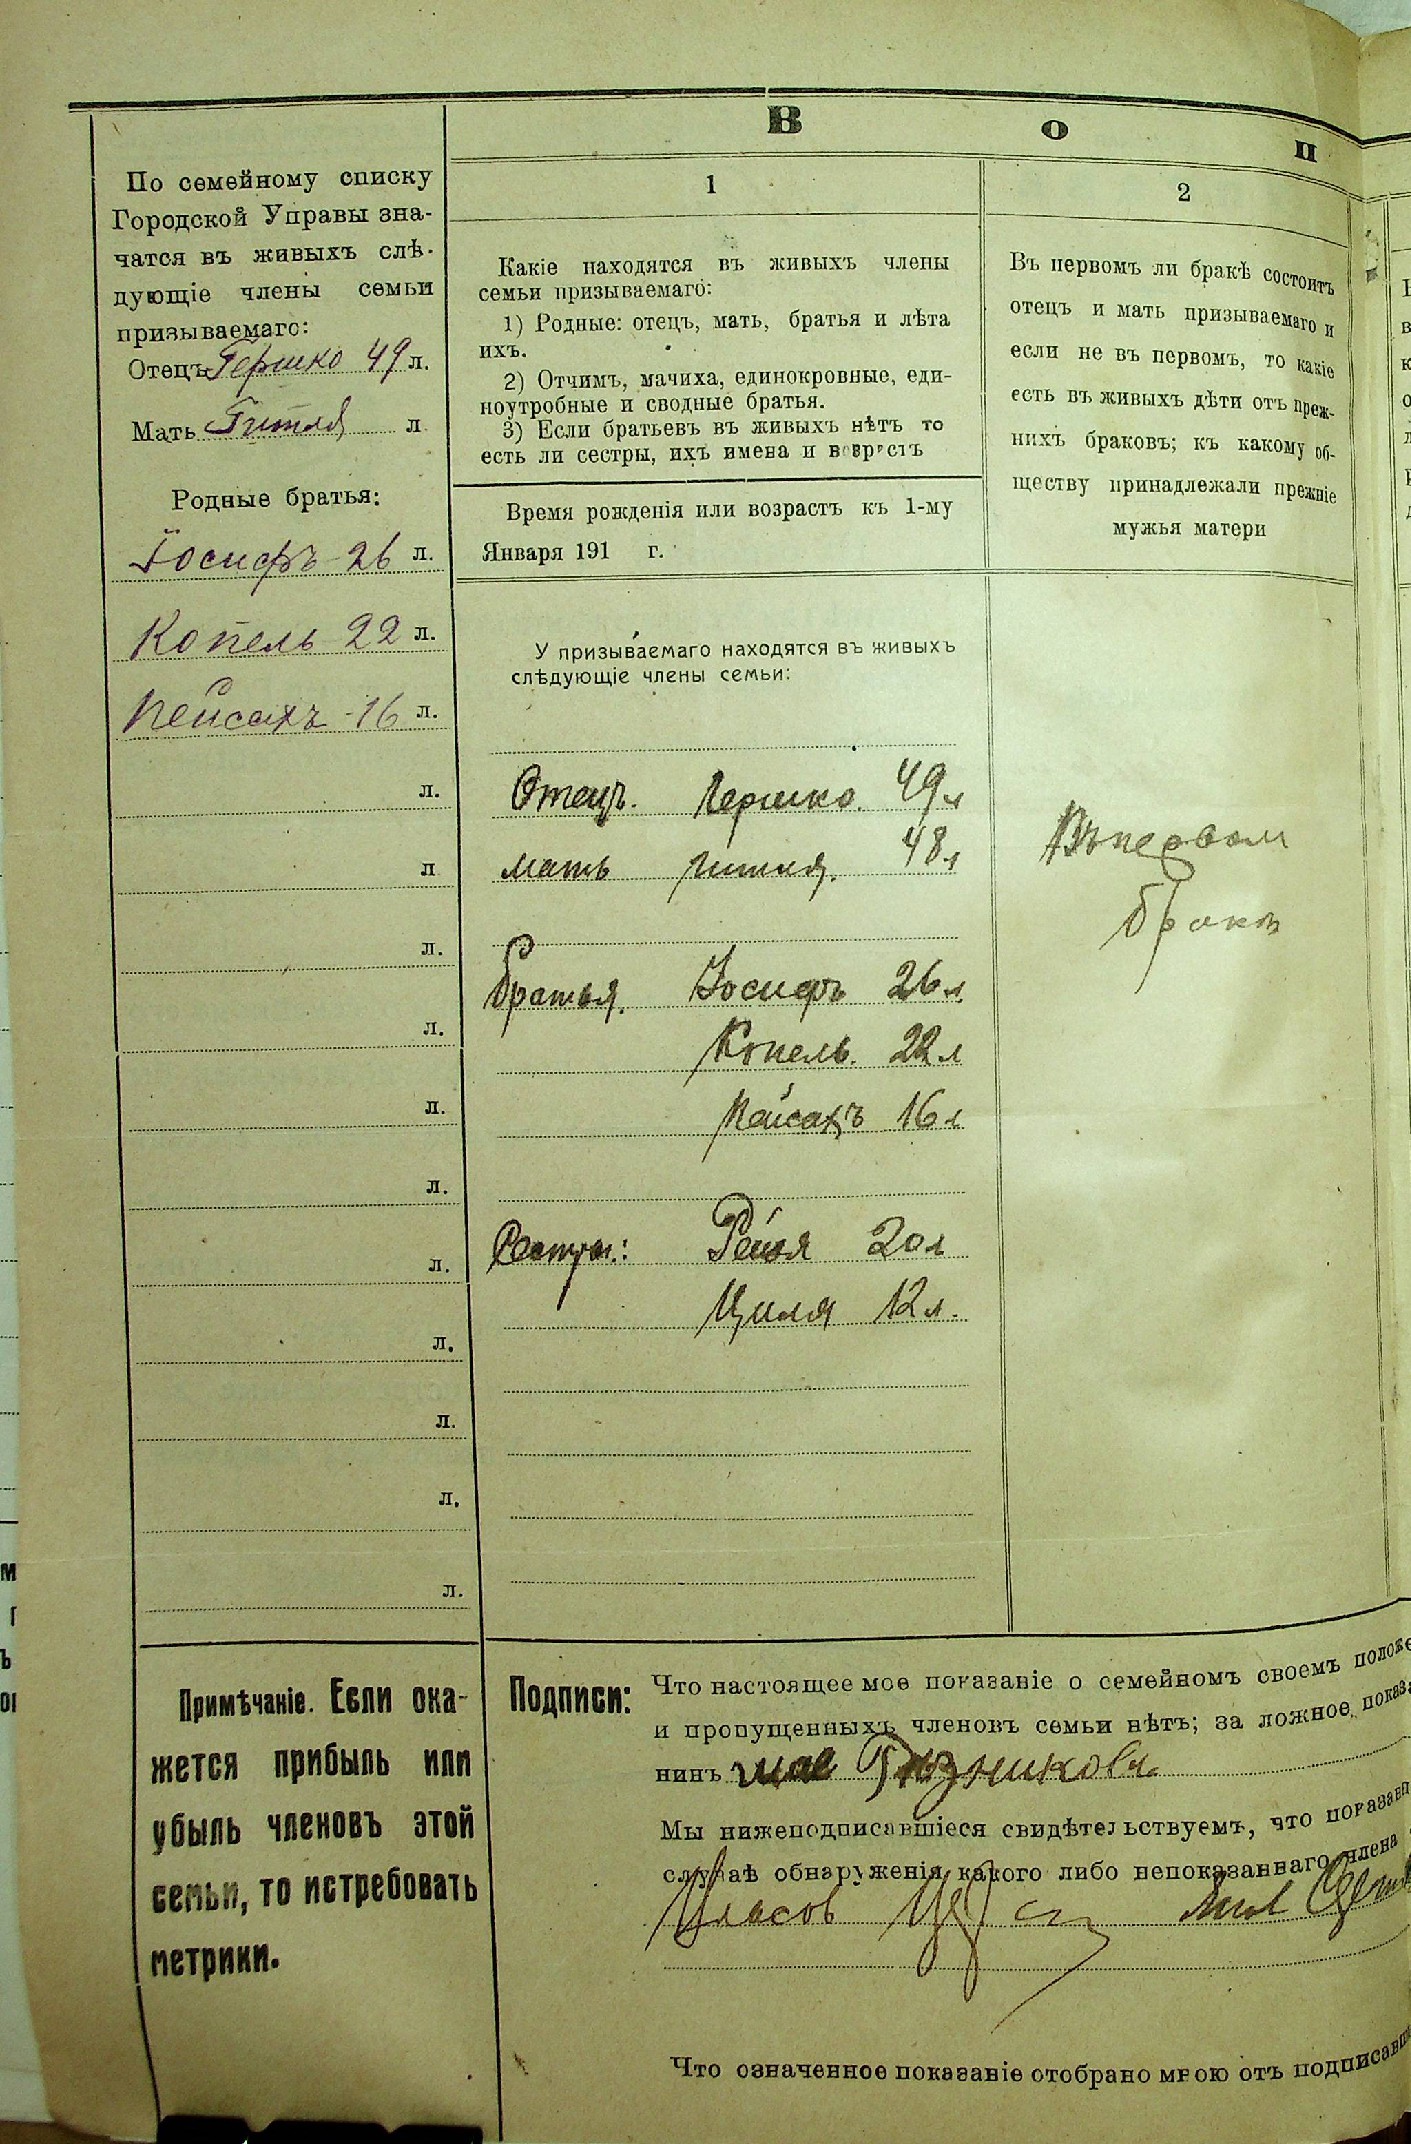 В о п
По семейному списку
Городской Управы зна-
чатся въ живыхъ слѣ-
дующіе члены семьи
призываемаго:
Отецъ Гершко 49 л.
Мать Гитля л
Родные братья:
Іосифъ - 26 л.
Копель 22 л.
Пейсахъ - 16 л.
л.
л
л.
л.
л.
л.
л.
л.
л.
л.
л.
1
Какіе находятся въ живыхъ члены
семьи призываемаго:
1) Родные: отецъ, мать, братья и лѣта
ихъ.
2) Отчимъ, мачиха, единокровные, еди-
ноутробные и сводные братья.
3) Если братьевъ въ живыхъ нѣтъ то
есть ли сестры, ихъ имена и возрастъ
Время рожденія или возрастъ къ 1-му
Января 191 г.
У призываемаго находятся въ живыхъ
слѣдующіе члены семьи:
Отецъ. Гершко. 49 л
мать гитля. 48 л
братья. Іосифъ 26 л
Копель. 22 л
Пейсахъ 16 л
Сестры: Рейзя 20 л
Циля 12 л.
2
Въ первомъ ли бракѣ состоитъ
отецъ и мать призываемаго и
если не въ первомъ, то какіе
есть въ живыхъ дѣти отъ преж-
нихъ браковъ; къ какому об-
ществу принадлежали прежніе
мужья матери
Въ первом
браке
Примѣчаніе. Если ока-
жется прибыль или
убыль членовъ этой
семьи, то истребовать
метрики.
Подписи:
Что настоящее мое показаніе о семейномъ своемъ положе
и пропущенныхъ членовъ семьи нѣтъ; за ложное показа
нинъ
Мы нижеподписавшіеся свидѣтельствуемъ, что показан
случаѣ обнаруженія какого либо непоказаннаго члена
Что означенное показаніе отобрано мною отъ подписавш